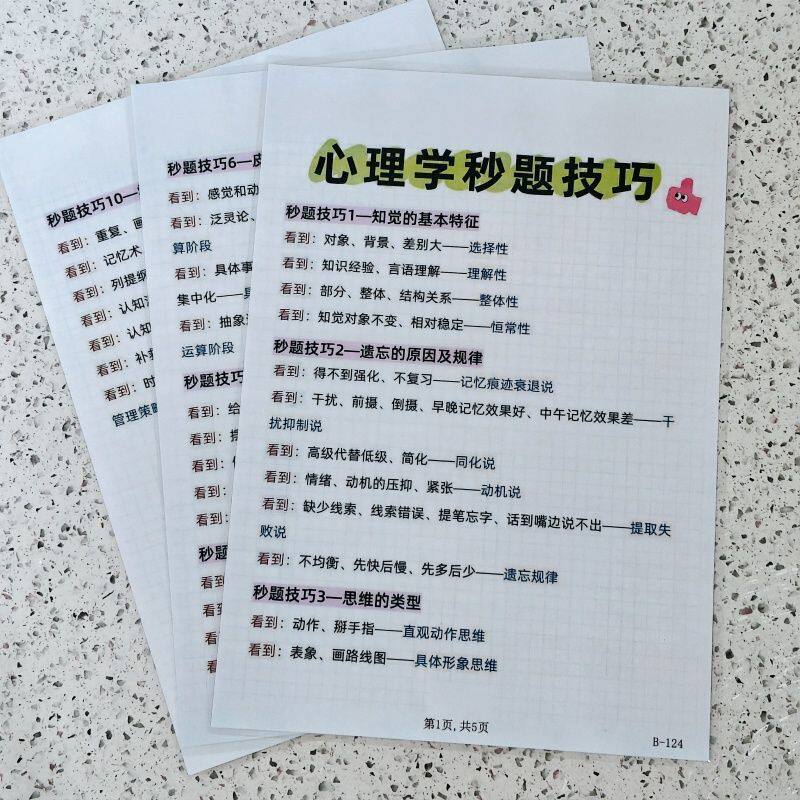 心理学秒题技巧
秒题技巧1—知觉的基本特征
看到：对象、背景、差别大——选择性
看到：知识经验、言语理解——理解性
看到：部分、整体、结构关系——整体性
看到：知觉对象不变、相对稳定——恒常性
秒题技巧2—遗忘的原因及规律
看到：得不到强化、不复习——记忆痕迹衰退说
看到：干扰、前摄、倒摄、早晚记忆效果好、中午记忆效果差——干
扰抑制说
看到：高级代替低级、简化——同化说
看到：情绪、动机的压抑、紧张——动机说
看到：缺少线索、线索错误、提笔忘字、话到嘴边说不出——提取失
败说
看到：不均衡、先快后慢、先多后少——遗忘规律
秒题技巧3—思维的类型
看到：动作、掰手指——直观动作思维
看到：表象、画路线图——具体形象思维
第1页,共5页
B-124
秒题技巧6—皮
看到：感觉和动
看到：泛灵论、
算阶段
看到：具体事
集中化——具
看到：抽象
运算阶段
秒题技巧
看到：给
看到：
看到：
看到：
看到：
秒题技巧
看到：
看到：
看到：
看到：
秒题技巧10—
看到：重复、画
看到：记忆术
看到：列提纲
看到：认知
看到：认知
看到：补
看到：时
管理策略